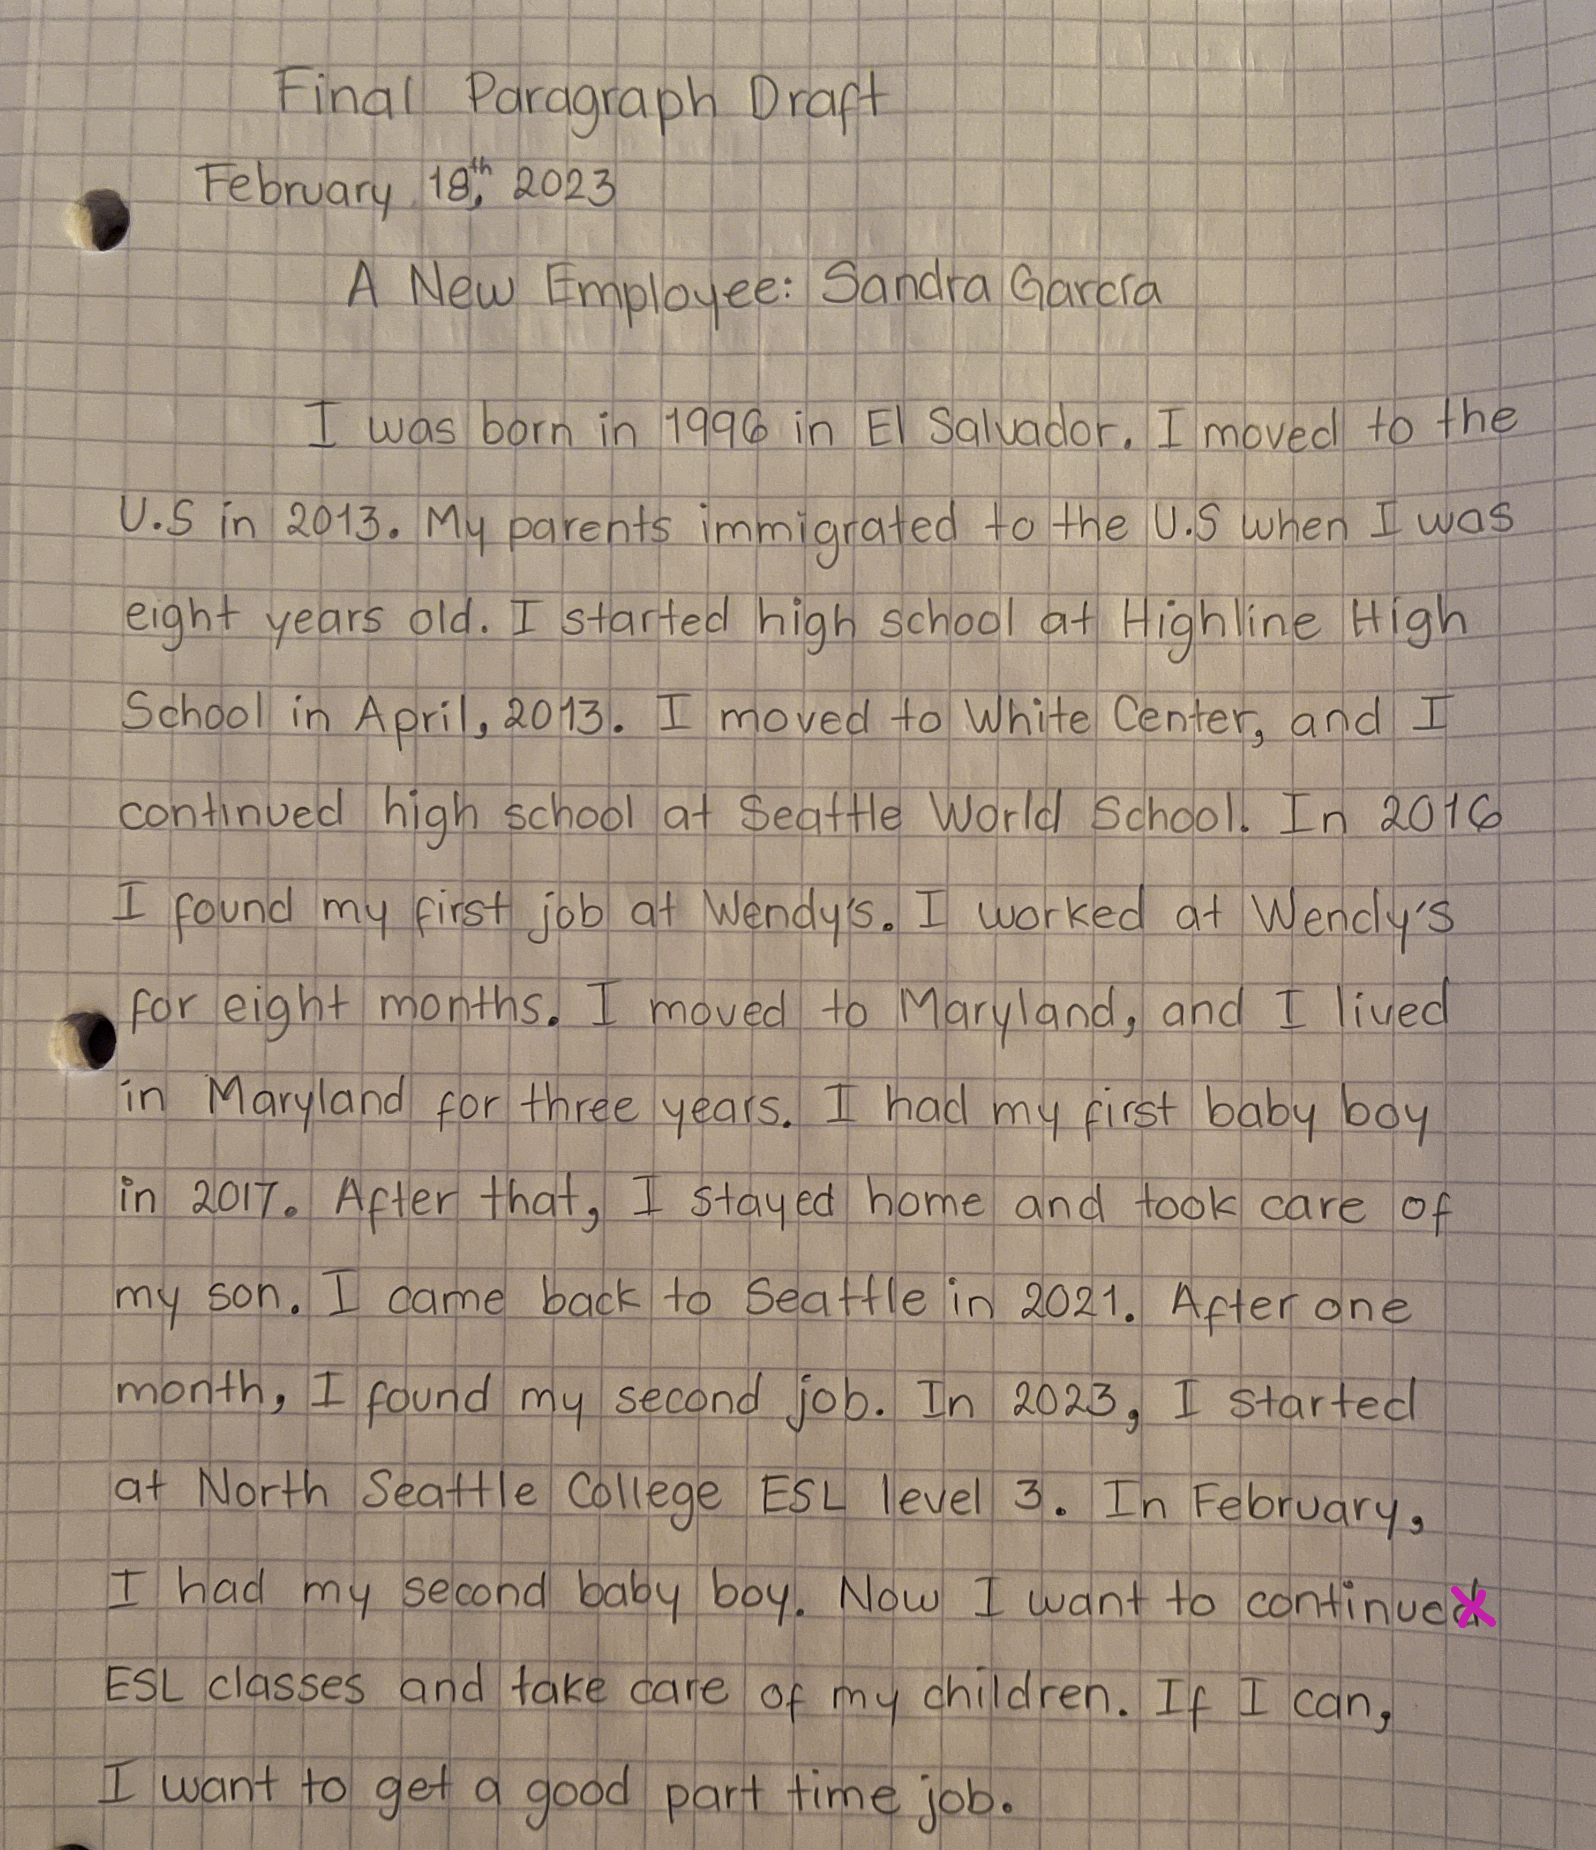 Final Paragraph Draft
February 18th, 2023
A New Employee: Sandra García
I was born in 1996 in El Salvador. I moved to the
U.S in 2013. My parents immigrated to the U.S when I was
eight years old. I started high school at Highline High
School in April, 2013. I moved to White Center, and I
continued high school at Seattle World School. In 2016
I found my first job at Wendy's. I worked at Wendy's
for eight months. I moved to Maryland, and I lived
in Maryland for three years. I had my first baby boy
in 2017. After that, I stayed home and took care of
my son. I came back to Seattle in 2021. After one
month, I found my second job. In 2023, I started
at North Seattle College ESL level 3. In February,
I had my second baby boy. Now I want to continued
ESL classes and take care of my children. If I can,
I want to get a good part time job.